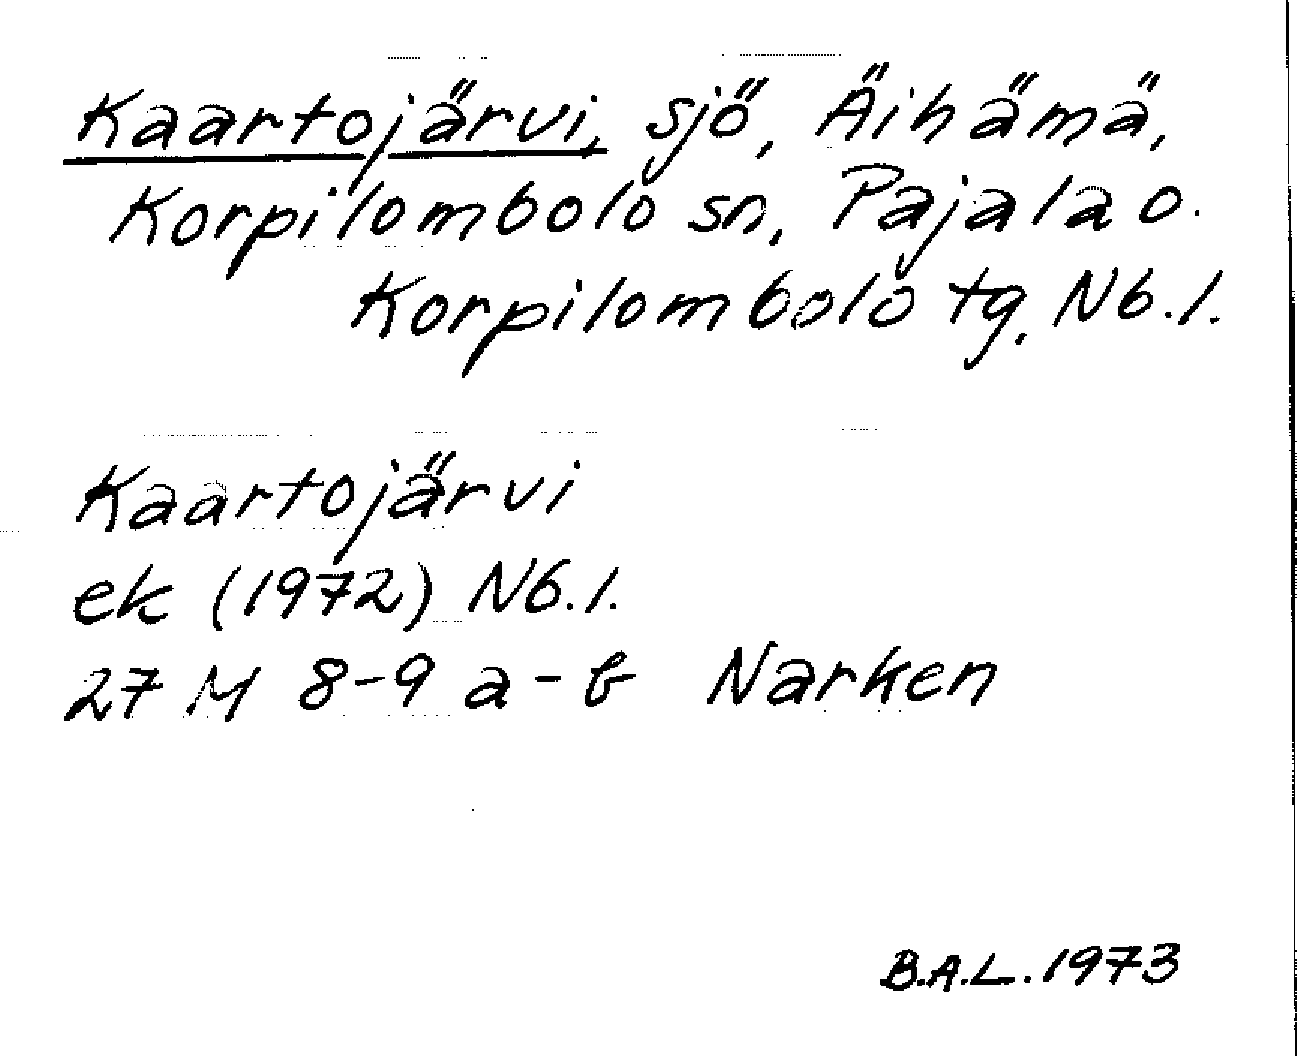 Kaartojärvi, sjö, Äihämä,
Korpilombolo sn, Pajala o.
Korpilombolo tg, Nb.l.
Kaartojärvi
ek (1972) Nb.l.
27 M 8-9 a-b Narken
B.A.L. 1973